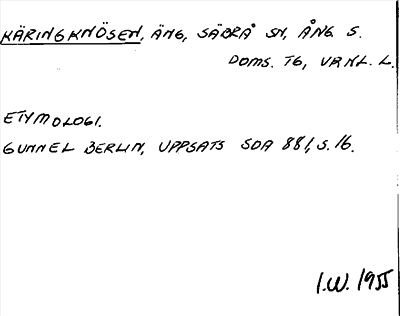 KÄRINGKNÖSEN, ÄNG, SÄBRÅ SN, ÅNG S.
DOMS. TG, VRNL. L.
ETYMOLOGI.
GUNNEL BERLIN, UPPSATS SOA 881, S. 16.
I.W. 1955